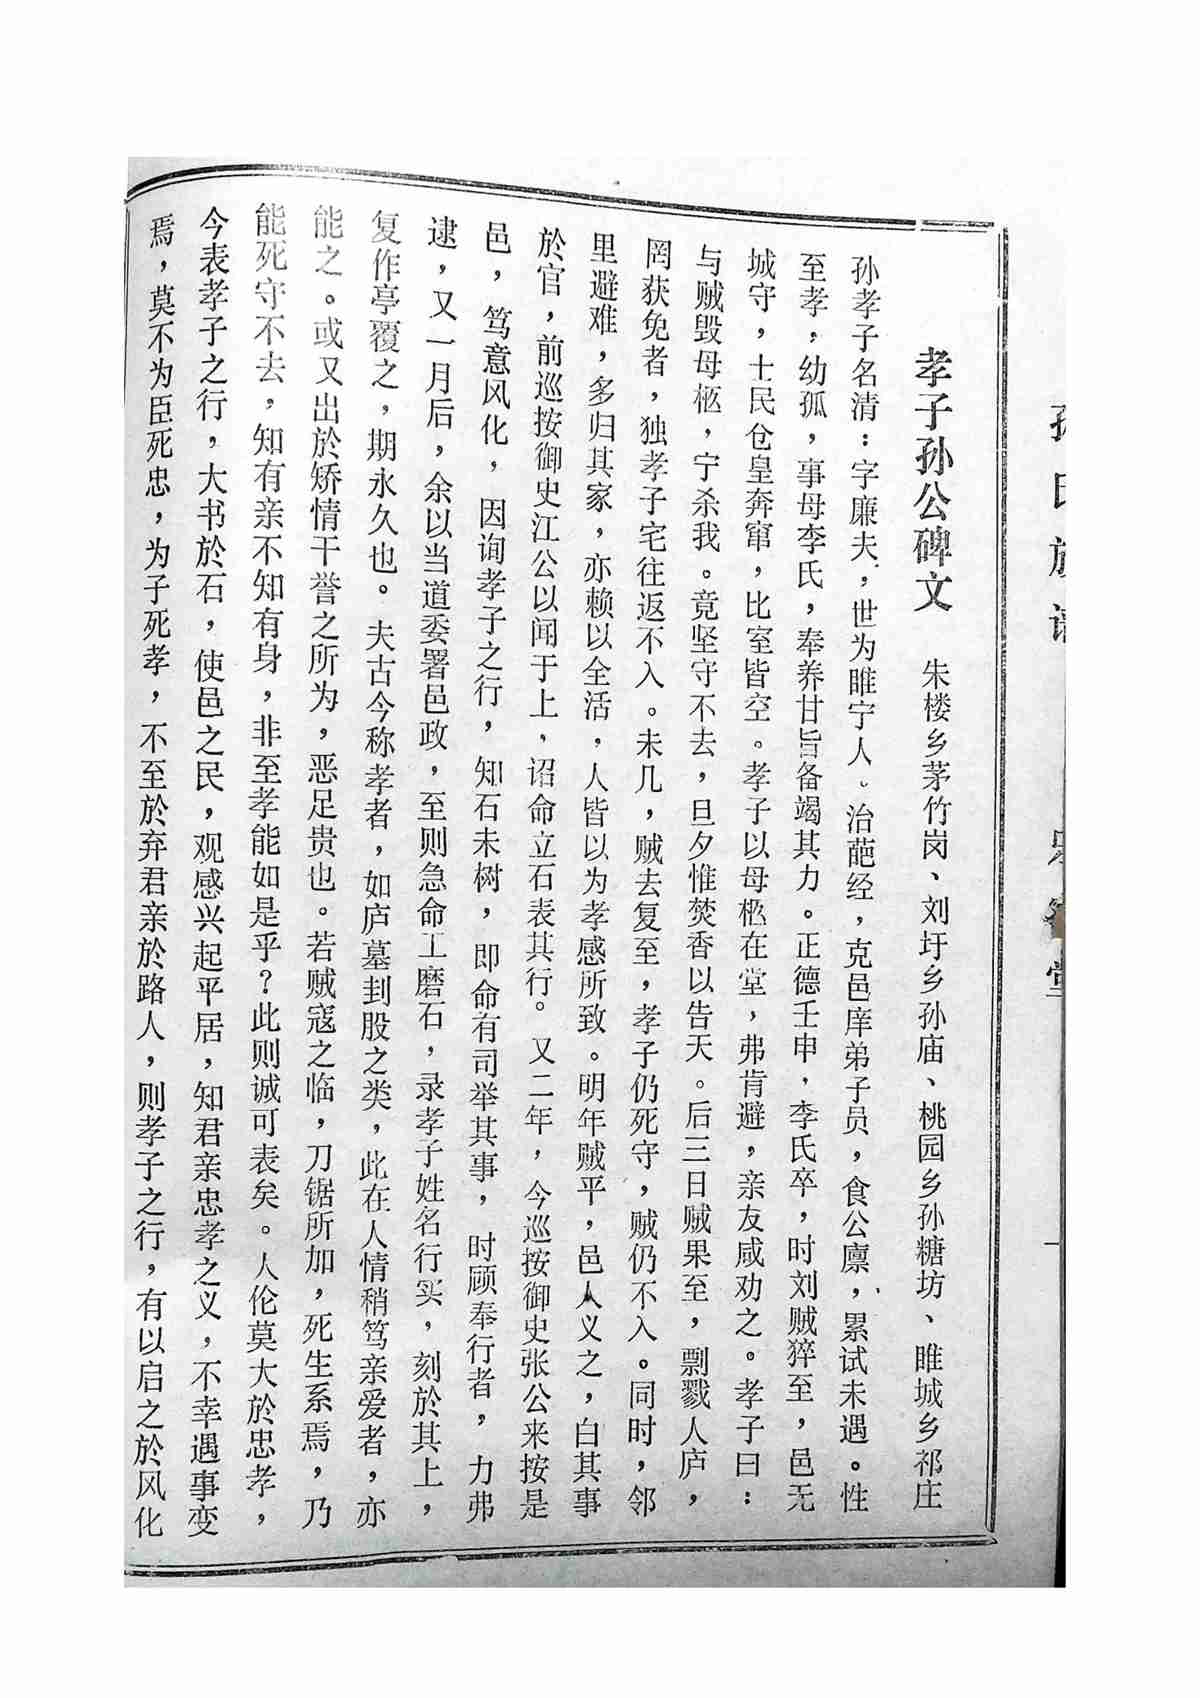 孙氏族谱
堂
一
孝子孙公碑文 朱楼乡茅竹岗、刘圩乡孙庙、桃园乡孙糖坊、睢城乡祁庄
孙孝子名清：字廉夫，世为睢宁人。治葩经，克邑庠弟子员，食公廪，累试未遇。性
至孝，幼孤，事母李氏，奉养甘旨备竭其力。正德壬申，李氏卒，时刘贼猝至，邑无
城守，士民仓皇奔窜，比室皆空。孝子以母柩在堂，弗肯避，亲友咸劝之。孝子曰：
与贼毁母柩，宁杀我。竟坚守不去，旦夕惟焚香以告天。后三日贼果至，剽戮人庐，
罔获免者，独孝子宅往返不入。未几，贼去复至，孝子仍死守，贼仍不入。同时，邻
里避难，多归其家，亦赖以全活，人皆以为孝感所致。明年贼平，邑人义之，白其事
於官，前巡按御史江公以闻于上，诏命立石表其行。又二年，今巡按御史张公来按是
邑，笃意风化，因询孝子之行，知石未树，即命有司举其事，时顾奉行者，力弗
逮，又一月后，余以当道委署邑政，至则急命工磨石，录孝子姓名行实，刻於其上，
复作亭覆之，期永久也。夫古今称孝者，如庐墓封股之类，此在人情稍笃亲爱者，亦
能之。或又出於矫情干誉之所为，恶足贵也。若贼寇之临，刀锯所加，死生系焉，乃
能死守不去，知有亲不知有身，非至孝能如是乎？此则诚可表矣。人伦莫大於忠孝，
今表孝子之行，大书於石，使邑之民，观感兴起平居，知君亲忠孝之义，不幸遇事变
焉，莫不为臣死忠，为子死孝，不至於弃君亲於路人，则孝子之行，有以启之於风化